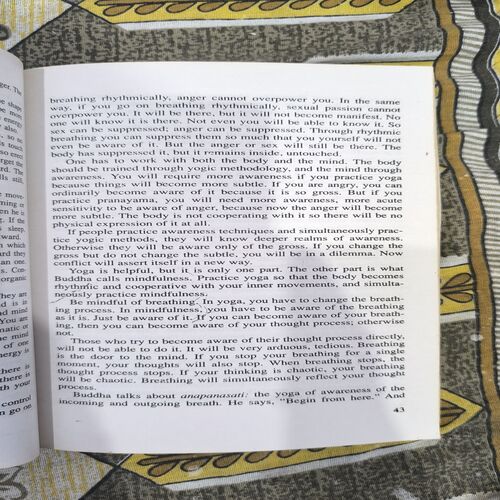 breathing rhythmically, anger cannot overpower you. In the same
way, if you go on breathing rhythmically, sexual passion cannot
overpower you. It will be there, but it will not become manifest. No
one will know it is there. Not even you will be able to know it. So
sex can be suppressed; anger can be suppressed. Through rhythmic
breathing you can suppress them so much that you yourself will not
even be aware of it. But the anger or sex will still be there. The
body has suppressed it, but it remains inside, untouched.
One has to work with both the body and the mind. The body
should be trained through yogic methodology, and the mind through
awareness. You will require more awareness if you practice yoga
because things will become more subtle. If you are angry, you can
ordinarily become aware of it because it is so gross. But if you
practice pranayama, you will need more awareness, more acute
sensitivity to be aware of anger, because now the anger will become
more subtle. The body is not cooperating with it so there will be no
physical expression of it at all.
If people practice awareness techniques and simultaneously prac-
tice yogic methods, they will know deeper realms of awareness.
Otherwise they will be aware only of the gross. If you change the
gross but do not change the subtle, you will be in a dilemma. Now
conflict will assert itself in a new way.
Yoga is helpful, but it is only one part. The other part is what
Buddha calls mindfulness. Practice yoga so that the body becomes
rhythmic and cooperative with your inner movements, and simulta-
neously practice mindfulness.
Be mindful of breathing. In yoga, you have to change the breath-
ing process. In mindfulness, you have to be aware of the breathing
as it is. Just be aware of it. If you can become aware of your breath-
ing, then you can become aware of your thought process; otherwise
not.
Those who try to become aware of their thought process directly,
will not be able to do it. It will be very arduous, tedious. Breathing
is the door to the mind. If you stop your breathing for a single
moment, your thoughts will also stop. When breathing stops, the
thought process stops. If your thinking is chaotic, your breathing
will be chaotic. Breathing will simultaneously reflect your thought
process.
Buddha talks about anapanasati: the yoga of awareness of the
incoming and outgoing breath. He says, "Begin from here." And
43